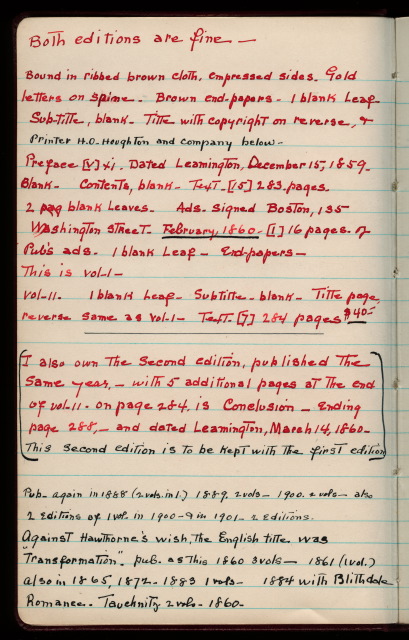 Both editions are fine —
Bound in ribbed brown cloth, empressed sides. Gold
letters on spine. Brown end-papers - 1 blank Leaf
Sub-title, blank - Title with copyright on reverse, &
Printer H.O. Houghton and company below -
Preface [v] xi. Dated Leamington, December 15, 1859.
Blank - Contents, blank - Text - [15] 283 pages.
2 pag blank Leaves. Ads. Signed Boston, 135
Washington Street. February, 1860 - [1] 16 pages of
Pub's ads. 1 blank Leaf - End-papers -
This is vol-1 -
Vol-11. 1 blank Leaf - Subtitle - blank - Title page,
reverse same as vol-1 - Text - [7] 284 pages $40-
[I also own The Second edition, published The
same year, - with 5 additional pages at The end
of vol-11 - on page 284, is Conclusion - Ending
page 288, - and dated Leamington, March 14, 1860 -
This second edition is to be kept with The first edition]
Pub- again in 1888 (2 vols. in 1.) 1889. 2 vols - 1900. 2 vols - also
2 Editions of 1 vol. in 1900 - & in 1901 - 2 editions.
Against Hawthorne's wish, The English title was
"Transformation". pub. as This 1860 3 vols - 1861 (1 vol.)
also in 1865, 1872 - 1883 1 vols - 1884 with Blithdale
Romance. Tauchnitz 2 vols - 1860 -